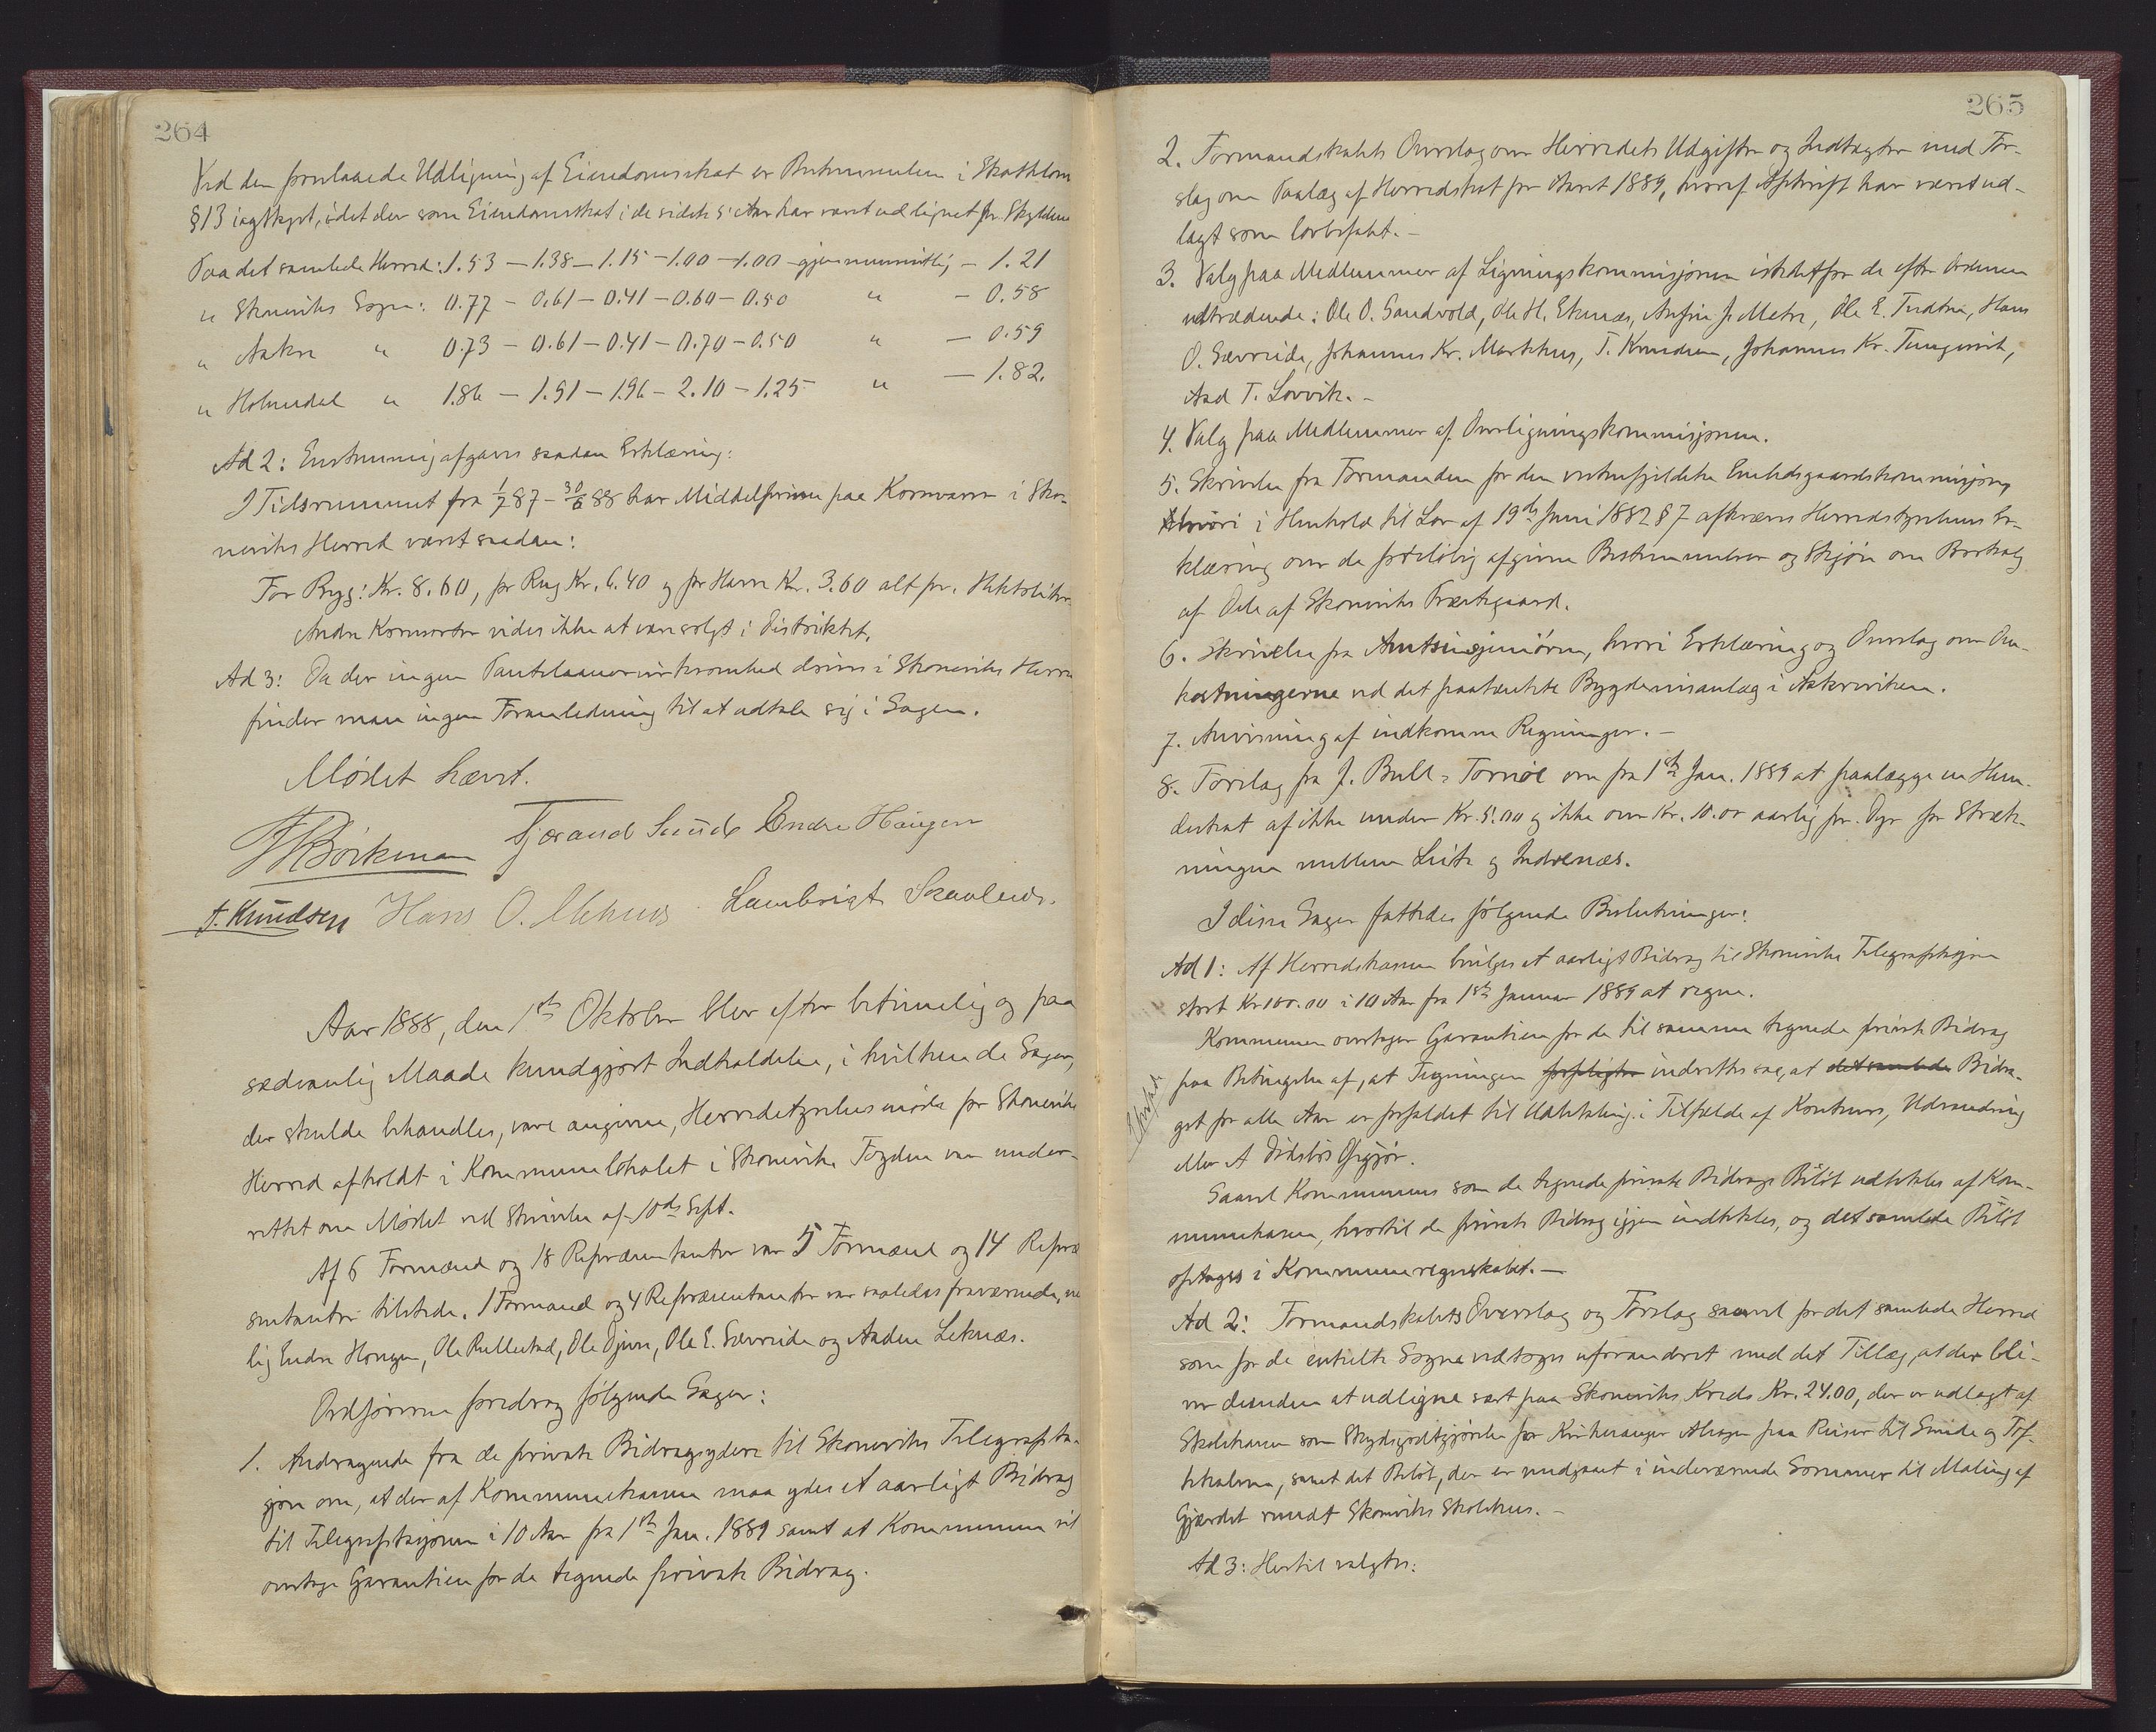 264
Ved den foreslaaede Udligning af Eiendomsskat er Bestemmelsen i Skatteloven
§ 13 iagttaget, idet der som Eiendomsskat i de sidste 5 Aar har været udlignet pr. Skylden
Paa det samlede Herred: 1.53 – 1.38 – 1.15 – 1.00 – 1.00 – gjennemsnitlig – 1.21
" Skoneviks Sogn: 0.77 – 0.61 – 0.41 – 0.60 – 0.50 " – 0.58
" Aakre " 0.73 – 0.61 – 0.41 – 0.70 – 0.50 " – 0.59
" Holmedal " 1.86 – 1.91 – 1.96 – 2.10 – 1.25 " – 1.82.
Ad 2: Enstemmig afgaves saadan Erklæring:
I Tidsrummet fra 1/7 87 – 30/6 88 har Middelprisen paa Kornvarer i Sko-
neviks Herred været saadan:
For Byg: Kr. 8.60, for Rug Kr. 6.40 og for Havre Kr. 3.60 alt pr. Hektoliter.
Andre Kornsorter vides ikke at være solgt i Distriktet.
Ad 3: Da der ingen Pantelaanervirksomhed drives i Skoneviks Herred
finder man ingen Foranledning til at udtale sig i Sagen.
Mødet hævet.
Børkman Tjærand Sunde Endre Haugen
T. Knudsen Hans O. Mehus Lambrigt Skaaluren
Aar 1888, den 1ste Oktober blev efter betimelig og paa
sædvanlig Maade kundgjort Indkaldelse, i hvilken de Sager,
der skulde behandles, vare angivne, Herredstyrelsesmøde for Skoneviks
Herred afholdt i Kommunelokalet i Skonevik. Fogden var under-
rettet om Mødet ved Skrivelse af 10de Sept.
Af 6 Formænd og 18 Repræsentanter var 5 Formænd og 14 Repræ
sentanter tilstede. 1 Formand og 4 Repræsentanter var saaledes fraværende, nem
lig Endre Hougen, Ole Rullestad, Ole Djuve, Ole E. Sævreide og Anden Leknæs.
Ordføreren foredrog følgende Sager:
1. Andragende fra de private Bidragsydere til Skoneviks Telegrafsta-
sjon om, at der af Kommunekassen maa ydes et aarligt Bidrag
til Telegrafstasjonen i 10 Aar fra 1ste Jan. 1889 samt at Kommunen vil
overtage Garantien for de tegnede private Bidrag.
265
2. Formandskabets Overslag over Herredets Udgifter og Indtægter med For-
slag om Paalæg af Herredskat for Aaret 1889, hvoraf Afskrift har været ud-
lagt som lovbefalt. –
3. Valg paa Medlemmer af Ligningskommisjonen istedetfor de efter Ordenen
udtrædende: Ole O. Sandvold, Ole H. Eknæs, Anfin J. Metre, Ole E. Tndtre, Hans
O. Sævreide, Johannes Kr. Markhus, T. Knudsen, Johannes Kr. Tungesvik,
Aad T. Lovvik. –
4. Valg paa Medlemmer af Overligningskommisjonen.
5. Skrivelse fra Formanden for den vestenfjeldske Embedsgaardskommisjon,
hvori i Henhold til Lov af 19de Juni 1882 § 7 afkræves Herredstyrelsens Er-
klæring over de foreløbig afgivne Bestemmelser og Skjøn om Bortsalg
af Dele af Skoneviks Præstegaard.
6. Skrivelse fra Amtsingeniøren, hvori Erklæring og Overslag over Om-
kostningerne ved det paatænkte Bygdeveisanlæg i Aakreviken.
7. Anvisning af indkomne Regninger. –
8. Forslag fra J. Bull-Tornøe om fra 1ste Jan. 1889 at paalægge en Hun-
deskat af ikke under Kr. 5.00 og ikke over Kr. 10.00 aarlig pr. Dyr for Stræk-
ningen mellem Leite og Indrenæs.
I disse Sager fattedes følgende Beslutninger:
Ad 1: Af Herredskassen bevilges et aarligt Bidrag til Skoneviks Telegrafstasjon
stort Kr 100.00 i 10 Aar fra 1ste Januar 1889 at regne.
Kommunen overtager Garantien for de til samme tegnede private Bidrag
paa Betingelse af, at Tegningen forpligter indrettes saa, at det samlede Bidra-
get for alle Aar er forfaldet til Udbetaling i Tilfælde af Konkurs, Udvandring
eller et Dødsbos Opgjør.
Saavel Kommunens som de tegnede private Bidrags Beløb udbetales af Kom-
munekassen, hvortil de private Bidrag igjen indbetales, og det samlede Beløb
optages i Kommuneregnskabet. –
Ad 2: Formandskabets Overslag og Forslag saavel for det samlede Herred
som for de enkelte Sogne vedtoges uforandret med det Tillæg, at der bli-
ver desuden at udligne sært paa Skoneviks Kreds Kr. 24.00, der er udlagt af
Skolekassen som Skydsgodtgjørelse for Kirkesanger Alsager paa Reiser til Sunde og Tof-
tekalven, samt det Beløb, der er medgaaet i indeværende Sommer til Maling af
Gjærdet rundt Skoneviks Skolehus. –
Ad 3: Hertil valgtes: